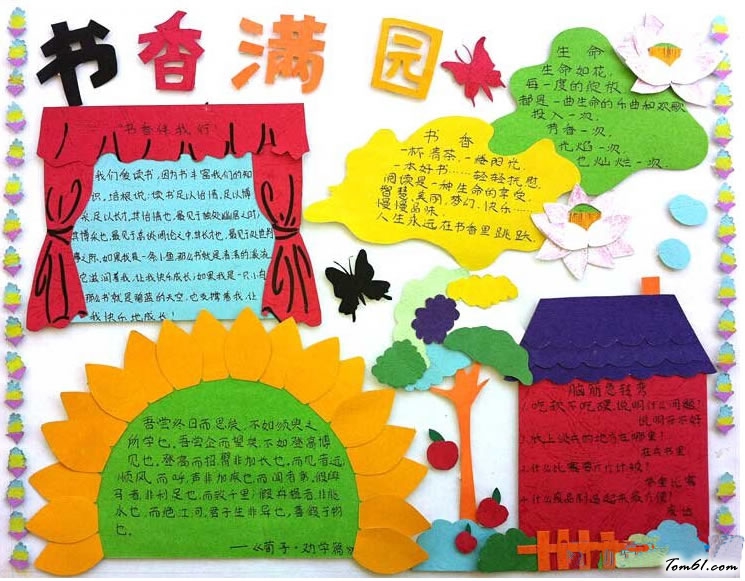 书香满园
书香伴我行
我们爱读书,因为书丰富我们的知
识,培根说:读书足以怡情,足以博
采,足以长才,其怡情也,最见于独处幽居之时;
其博采也,最见于高谈阔论之中;其长才也,最见于处世判
事之际。如果我是一条小鱼,那么书就是清清的
它滋润着我,让我快乐成长;如果我是一只小鸟
那么书就是碧蓝的天空,它支撑着我,让
我快乐地成长!
书香
一杯清茶,一缕阳光
一本好书……轻轻抚慰
阅读是一种生命的享受,
智慧、美丽、梦幻、快乐……
慢慢品味,
人生永远在书香里跳跃。
生命
生命如花,
每一度的绽放
都是一曲生命的乐曲和欢歌
投入一次,
芳香一次,
光焰一次,
也灿烂一次。
吾尝终日而思矣,不如须臾之
所学也,吾尝企而望矣,不如登高博
见也。登高而招,臂非加长也,而见者远,
顺风而呼,声非加疾也,而闻者彰,假舆
马者,非利足也,而致千里,假舟楫者,非能
水也,而绝江河,君子生非异也,善假于物
也。
——《荀子·劝学篇》
脑筋急转弯
1.吃软不吃硬,说明什么问题?
说明牙不好
2.纸上谈兵的地方在哪里?
在兵书里
3.什么比赛要斤斤计较?
举重比赛
4.什么食品制造起来最方便?
废话
Tom61.com